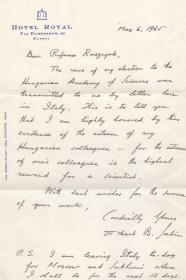 HOTEL ROYAL
VIA PARTENOPE, 38
NAPOLI
May 6, 1965
Dear Professor
The news of my election to the
Hungarian Academy of Sciences was
transmitted to me by letter here
in Italy. This is to tell you
that I am highly honored by this
evidence of the esteem of my
Hungarian colleagues — for the esteem
of one's colleagues is the highest
reward for a scientist.
With best wishes for the success
of your work,
Cordially Yours
Albert B. Sabin
P.S. I am leaving Italy to-day
for Moscow and Sukhumi where
I shall be for the next 12 days.